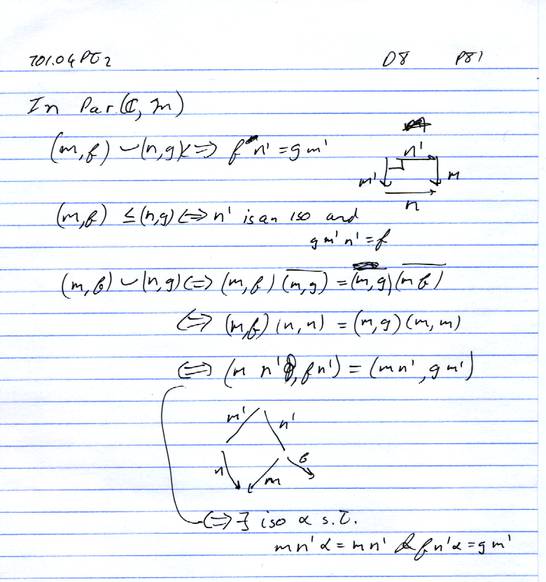 701.04 PT 2 D8 P81
In Par(ℂ, m)
(m,f) ⌣ (n,g) <=> f n' = g m'
n'
m' m
n
(m,f) ≤ (n,g) <=> n' is an iso and
g m' n' = f
(m,f) ⌣ (n,g) <=> (m,f) \overline{(n,g)} = \overline{(m,g)} \overline{(m f)}
<=> (m,f) (n,n) = (m,g) (m,m)
<=> (m n', f n') = (m n', g m')
m' n'
n m f
<=> ∃ iso α s.t.
m n' α = m n' & f n' α = g m'